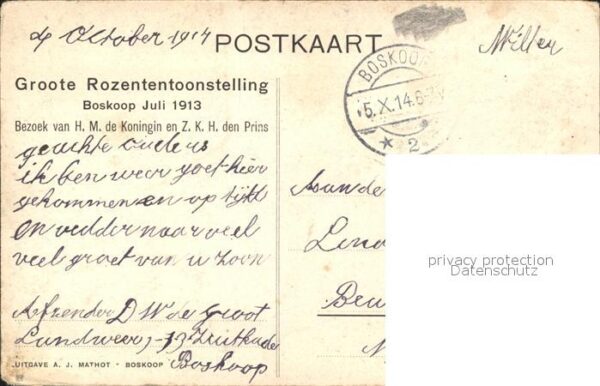 4 October 1914
POSTKAART
Willer
Groote Rozententoonstelling
Boskoop Juli 1913
Bezoek van H. M. de Koningin en Z. K. H. den Prins
BOSKOOP
5.X.14.6-7V
2
geachte ouders
ik ben weer goet hier
gekommen en op tijt
en vedder naar veel
veel groet van u zoon
Afzender D W de Groot
Landweer
Boskoop
Aan de
UITGAVE A. J. MATHOT - BOSKOOP
privacy protection
Datenschutz